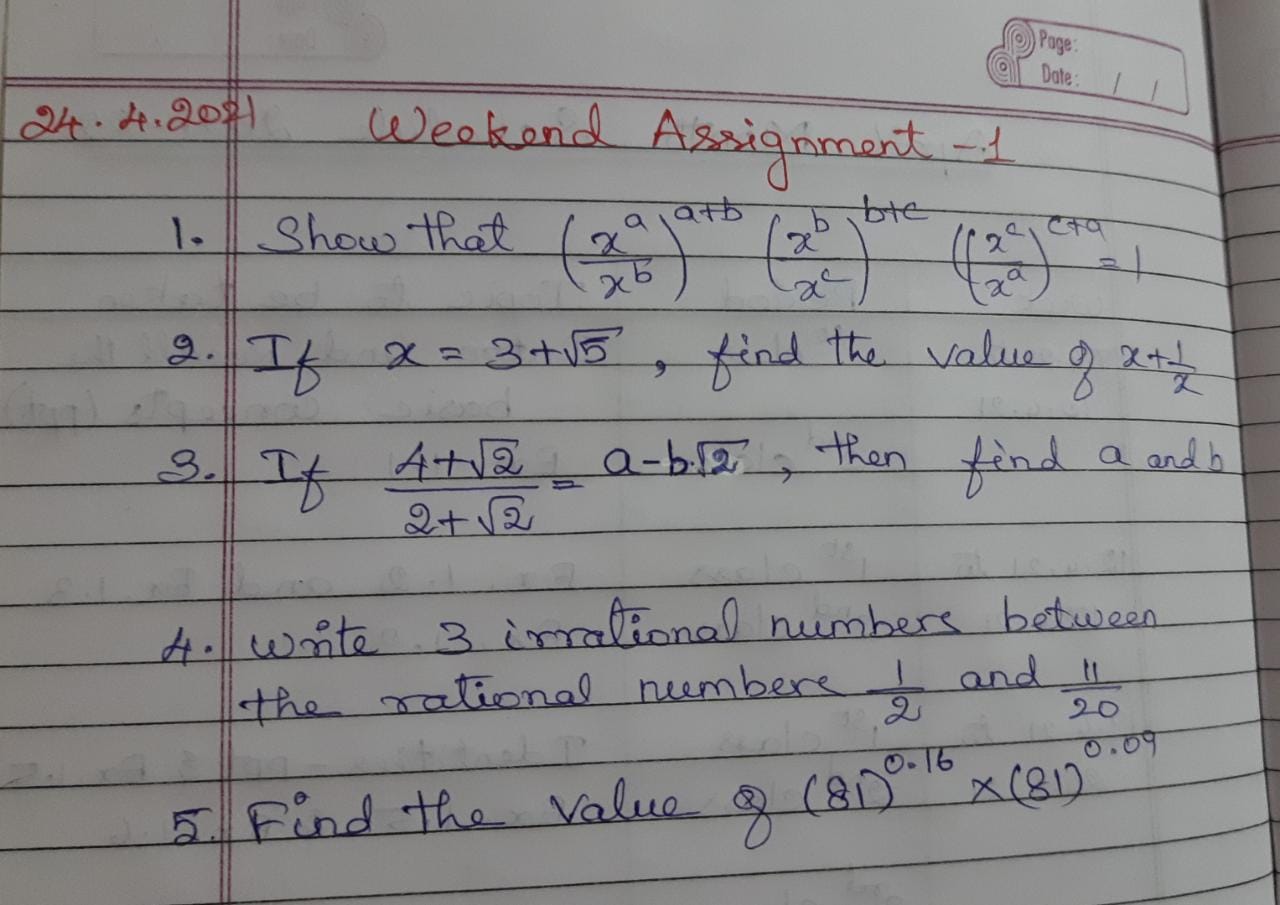 Page:
Date: / /
24.4.2021 Weekend Assignment -1
1. Show that (x^a/x^b)^(a+b) (x^b/x^c)^(b+c) ((x^c/x^a)^(c+a) = 1
2. If x = 3+√5 , find the value of x+1/x
3. If (4+√2)/(2+√2) = a-b√2 , then find a and b
4. Write 3 irrational numbers between
the rational numbers 1/2 and 11/20
5. Find the value of (81)^0.16 x (81)^0.09